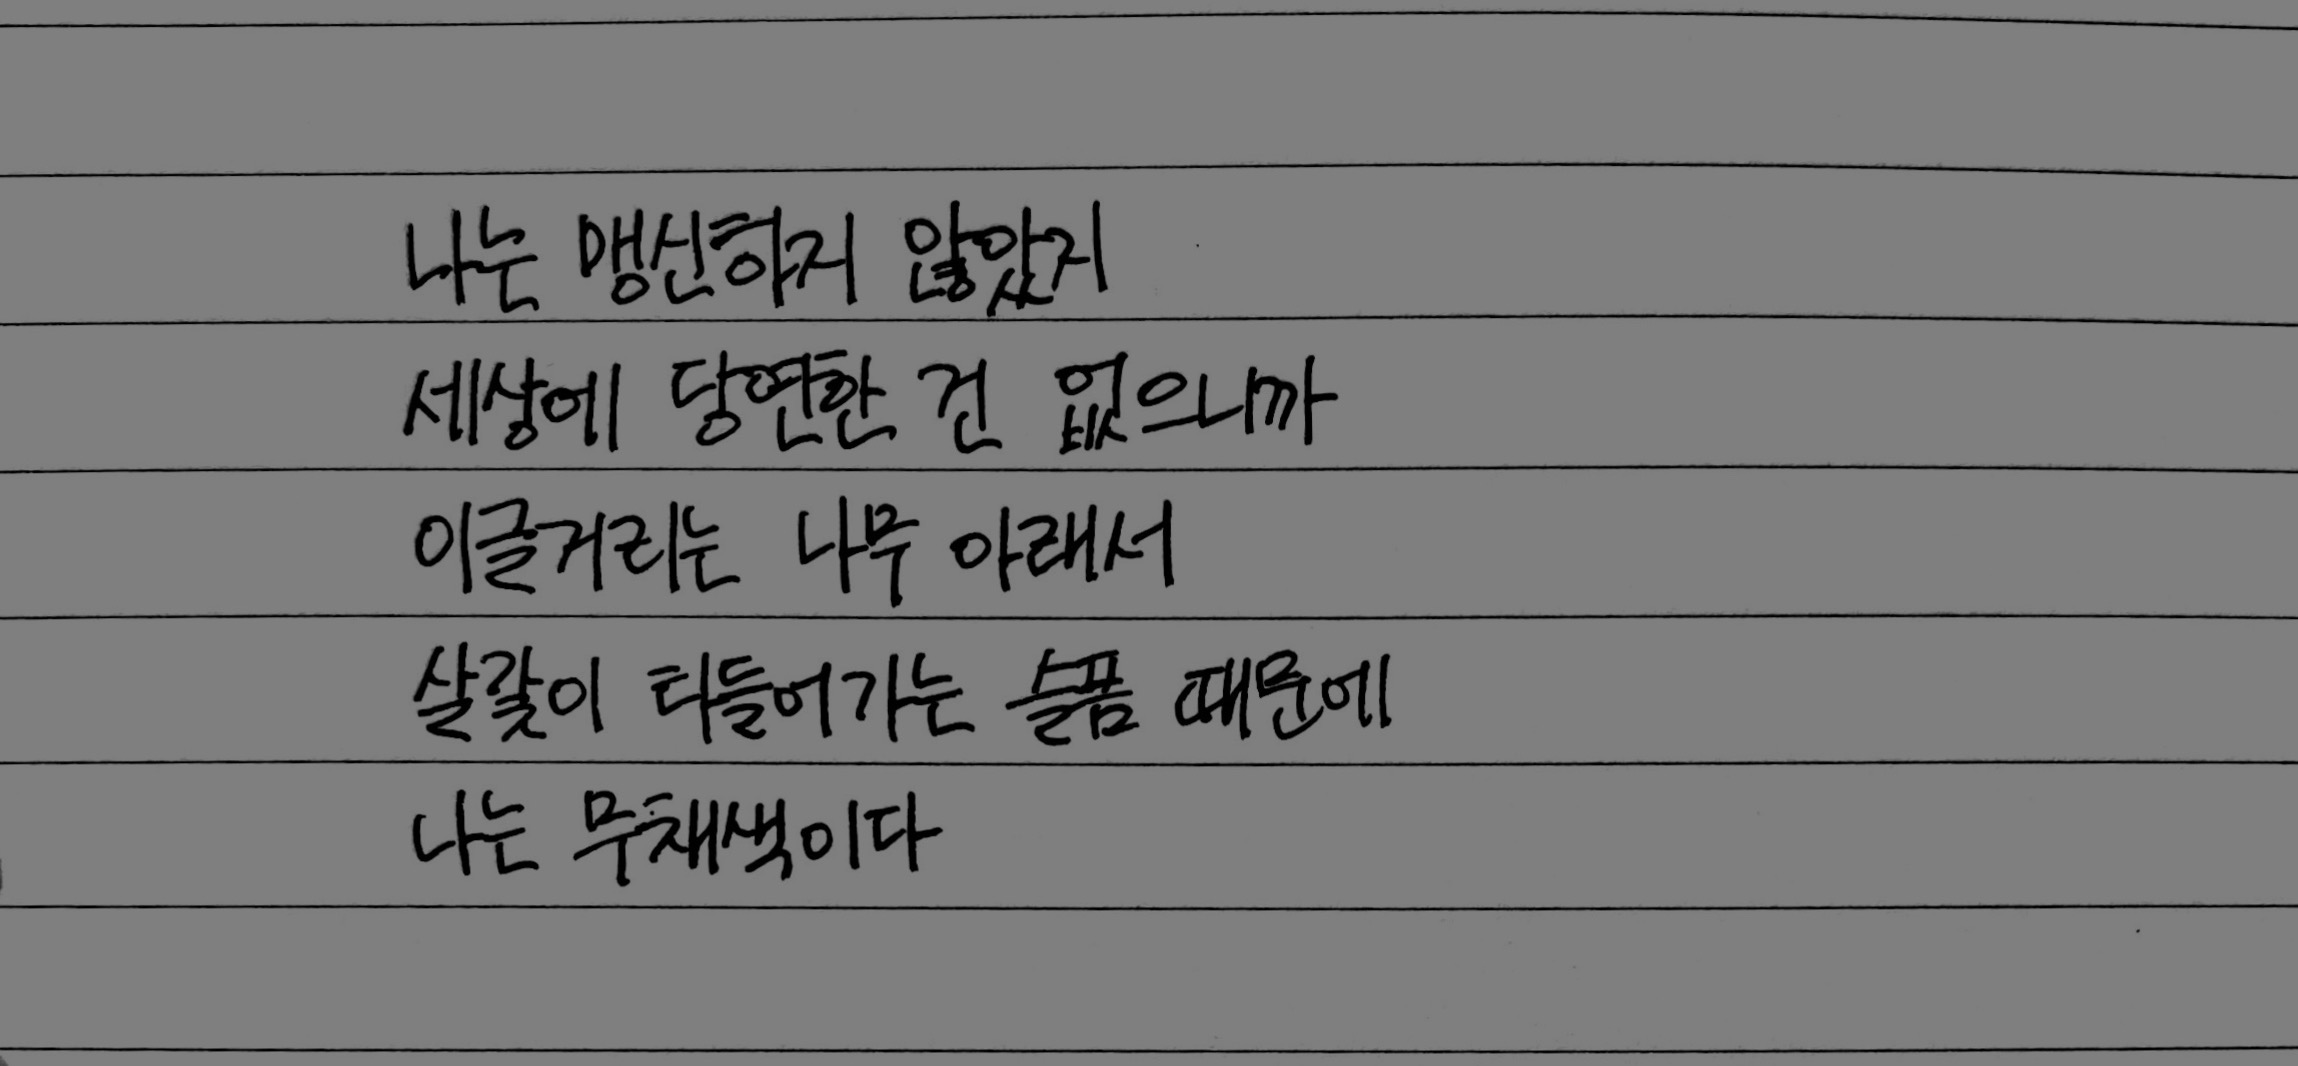 나는 맹신하지 않았지
세상에 당연한 건 없으니까
이글거리는 나무 아래서
살갗이 타들어가는 슬픔 때문에
나는 무채색이다